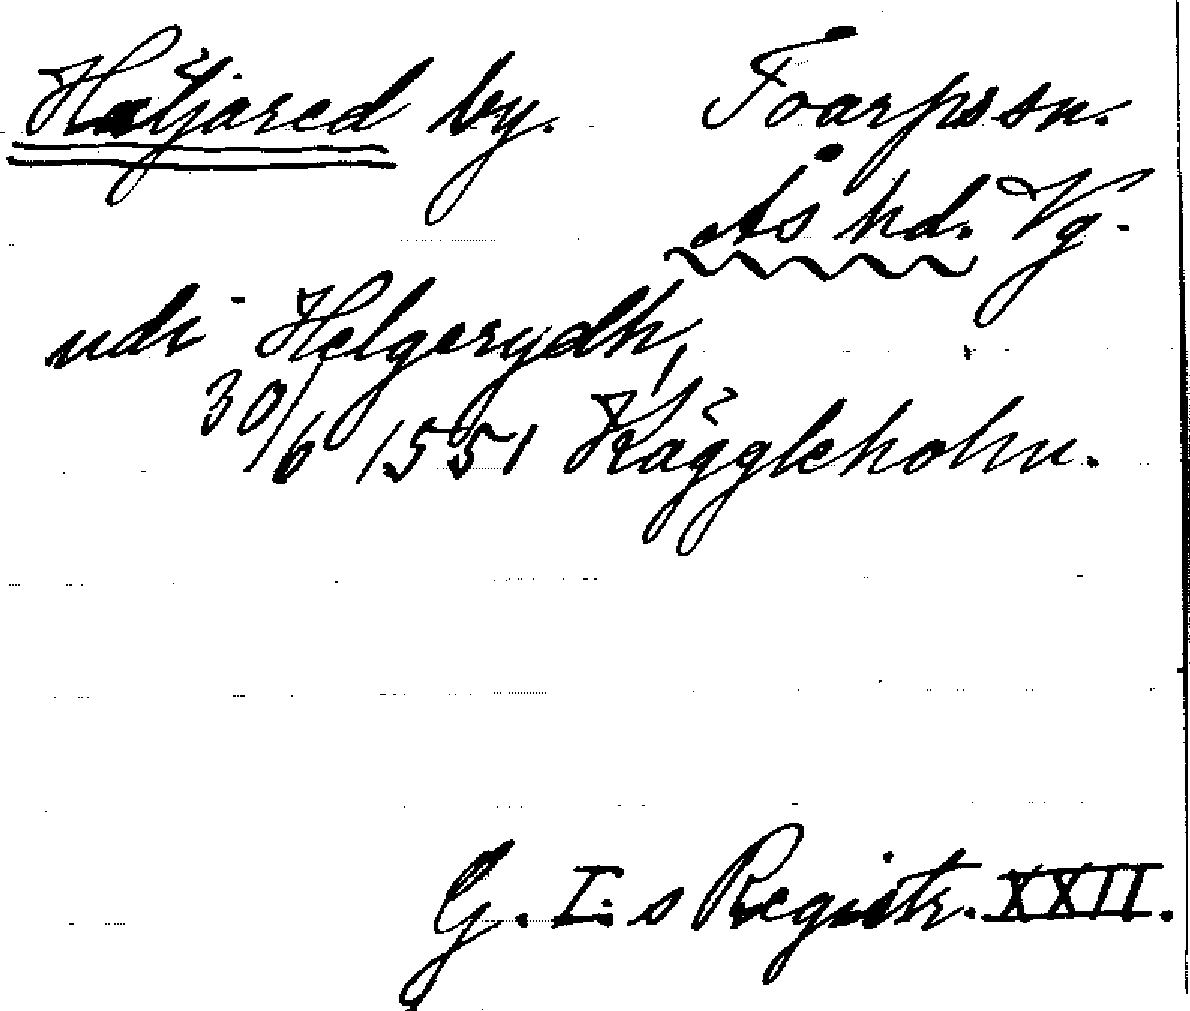 Häljared by. Toarps sn.
Ås hd. Vg.
udi Helgerydh,
30/6 1551 Käggleholm.
G. I:s Registr. XXII.